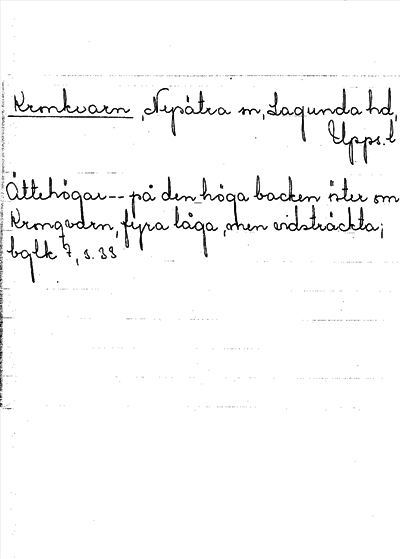 Kronkvarn, Nysätra sn, Lagunda hd,
Upps. l
Ättehögar -- på den höga backen öster om
Kronqvarn, fyra låga, men vidsträckta;
bglk 7, s. 33